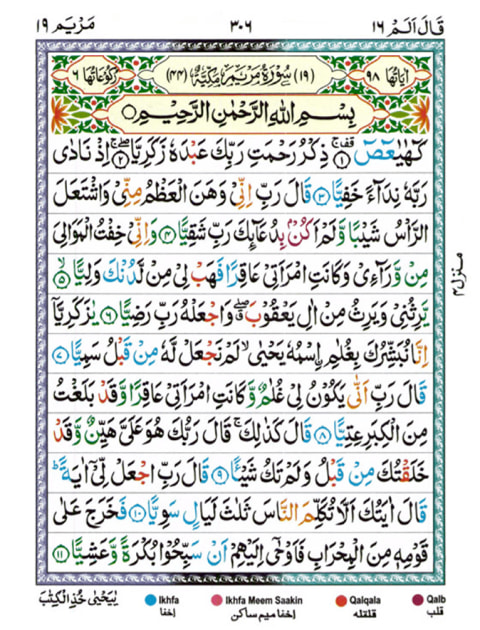 قَالَ اَلَمْ ١٦ ٣٠٦ مَرْيَم ١٩
اٰيَاتُهَا ٩٨ (١٩) سُوْرَةُ مَرْيَمَ مَكِّيَّةٌ (٤٤) رُكُوْعَاتُهَا ٦
بِسْمِ اللّٰهِ الرَّحْمٰنِ الرَّحِيْمِ
كٓهٰيٰعٓصٓ ۚ ١ ذِكْرُ رَحْمَتِ رَبِّكَ عَبْدَهٗ زَكَرِيَّا ۚ ٢ اِذْ نَادٰى
رَبَّهٗ نِدَآءً خَفِيًّا ٣ قَالَ رَبِّ اِنِّيْ وَهَنَ الْعَظْمُ مِنِّيْ وَاشْتَعَلَ
الرَّاْسُ شَيْبًا وَّلَمْ اَكُنْۢ بِدُعَآئِكَ رَبِّ شَقِيًّا ٤ وَاِنِّيْ خِفْتُ الْمَوَالِيَ
مِنْ وَّرَآءِيْ وَكَانَتِ امْرَاَتِيْ عَاقِرًا فَهَبْ لِيْ مِنْ لَّدُنْكَ وَلِيًّا ٥
يَّرِثُنِيْ وَيَرِثُ مِنْ اٰلِ يَعْقُوْبَ ۖ وَاجْعَلْهُ رَبِّ رَضِيًّا ٦ يٰزَكَرِيَّآ
اِنَّا نُبَشِّرُكَ بِغُلٰمِ ࣙاسْمُهٗ يَحْيٰى ۙ لَمْ نَجْعَلْ لَّهٗ مِنْ قَبْلُ سَمِيًّا ٧
قَالَ رَبِّ اَنّٰى يَكُوْنُ لِيْ غُلٰمٌ وَّكَانَتِ امْرَاَتِيْ عَاقِرًا وَّقَدْ بَلَغْتُ
مِنَ الْكِبَرِ عِتِيًّا ٨ قَالَ كَذٰلِكَ ۚ قَالَ رَبُّكَ هُوَ عَلَيَّ هَيِّنٌ وَّقَدْ
خَلَقْتُكَ مِنْ قَبْلُ وَلَمْ تَكُ شَيْـًٔا ٩ قَالَ رَبِّ اجْعَلْ لِّيْٓ اٰيَةً ۗ
قَالَ اٰيَتُكَ اَلَّا تُكَلِّمَ النَّاسَ ثَلٰثَ لَيَالٍ سَوِيًّا ١٠ فَخَرَجَ عَلٰى
قَوْمِهٖ مِنَ الْمِحْرَابِ فَاَوْحٰٓى اِلَيْهِمْ اَنْ سَبِّحُوْا بُكْرَةً وَّعَشِيًّا ١١
منزل ٤
يٰيَحْيٰى خُذِ الْكِتٰبَ
Ikhfa Ikhfa Meem Saakin Qalqala Qalb
اخفا اخفا میم ساکن قلقلہ قلب